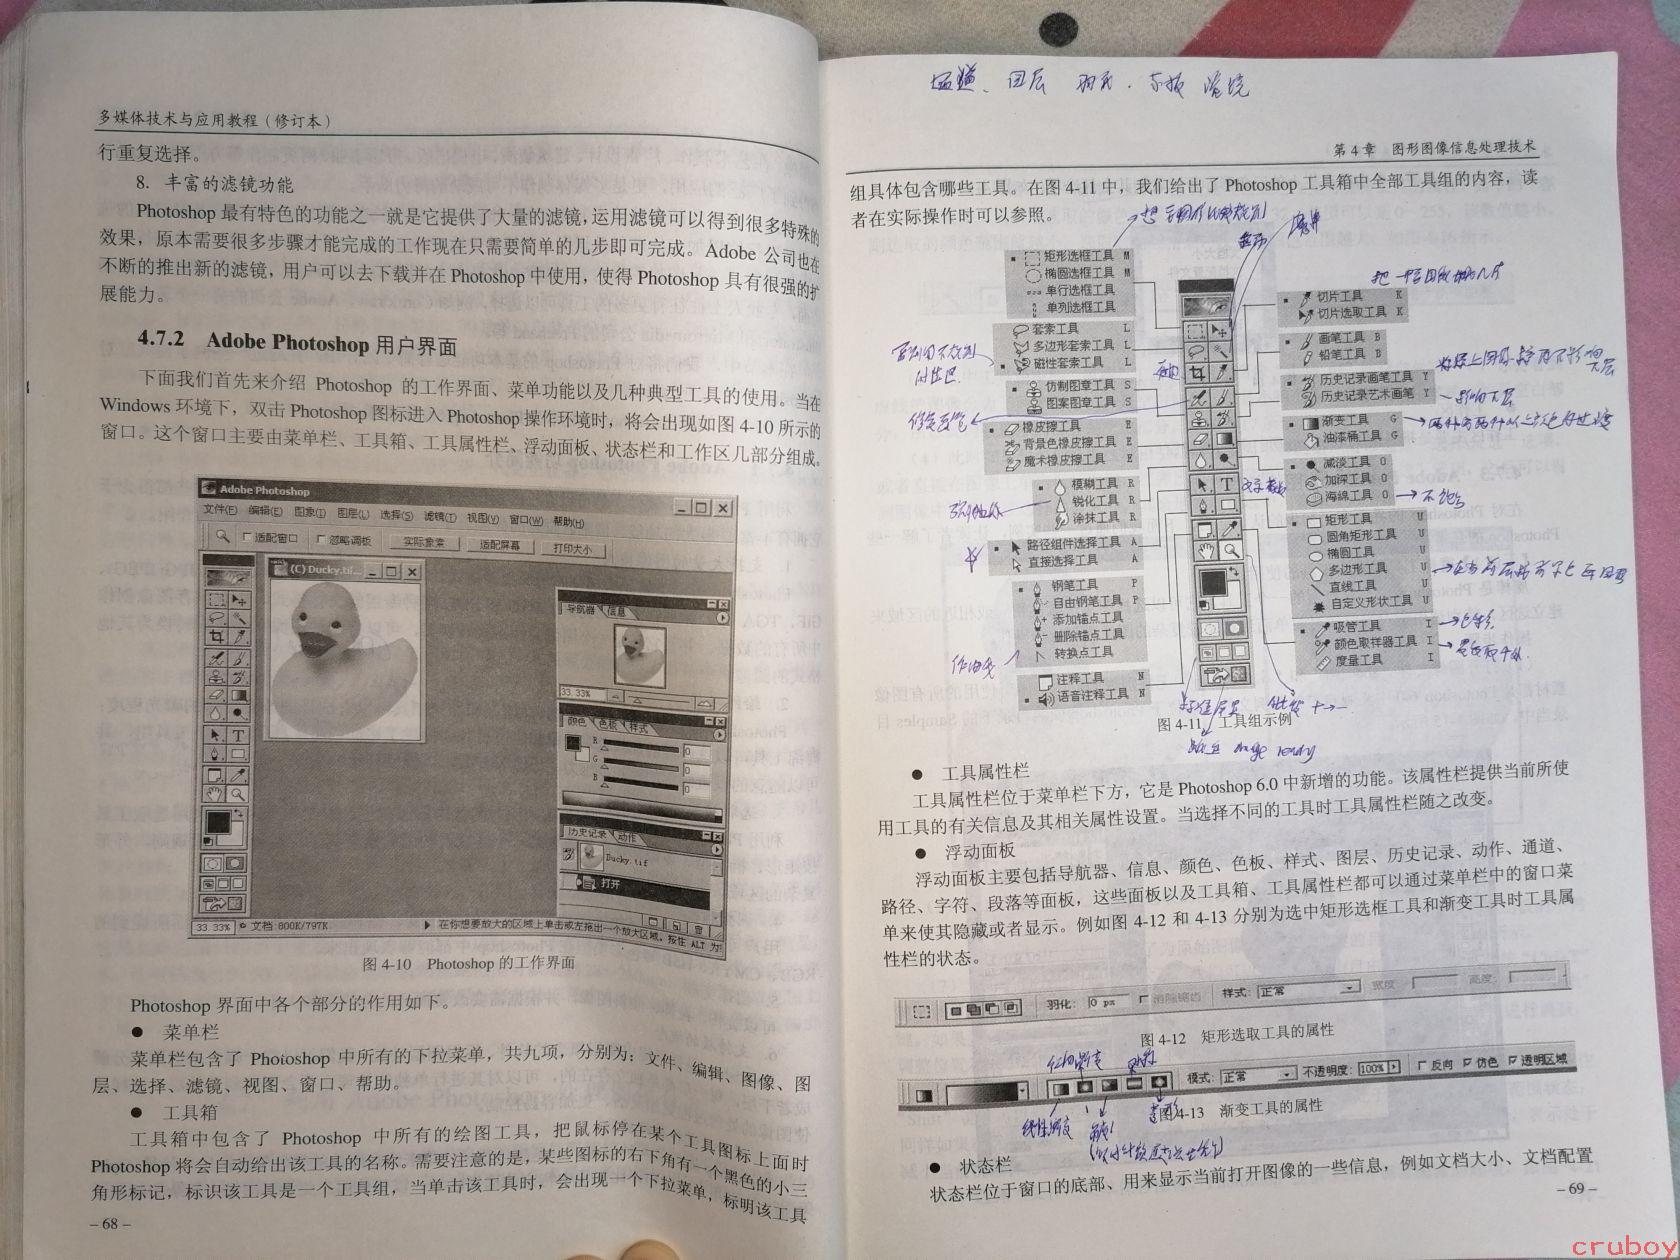 多媒体技术与应用教程（修订本）
行重复选择。
8. 丰富的滤镜功能
Photoshop 最有特色的功能之一就是它提供了大量的滤镜，运用滤镜可以得到很多特殊的
效果，原本需要很多步骤才能完成的工作现在只需要简单的几步即可完成。Adobe 公司也在
不断的推出新的滤镜，用户可以去下载并在 Photoshop 中使用，使得 Photoshop 具有很强的扩
展能力。
4.7.2 Adobe Photoshop 用户界面
下面我们首先来介绍 Photoshop 的工作界面、菜单功能以及几种典型工具的使用。当在
Windows 环境下，双击 Photoshop 图标进入 Photoshop 操作环境时，将会出现如图 4-10 所示的
窗口。这个窗口主要由菜单栏、工具箱、工具属性栏、浮动面板、状态栏和工作区几部分组成。
Adobe Photoshop
文件(F) 编辑(E) 图象(I) 图层(L) 选择(S) 滤镜(T) 视图(V) 窗口(W) 帮助(H)
适配窗口 忽略调板 实际象素 适配屏幕 打印大小
(C) Ducky.tif...
导航器 信息
33.33%
颜色 色板 样式
R 0
G 0
B 0
历史记录 动作
Ducky.tif
打开
33.33% 文档:800K/797K 在你想要放大的区域上单击或左拖出一个放大区域。按住 ALT 为
图 4-10 Photoshop 的工作界面
Photoshop 界面中各个部分的作用如下。
● 菜单栏
菜单栏包含了 Photoshop 中所有的下拉菜单，共九项，分别为：文件、编辑、图像、图
层、选择、滤镜、视图、窗口、帮助。
● 工具箱
工具箱中包含了 Photoshop 中所有的绘图工具，把鼠标停在某个工具图标上面时
Photoshop 将会自动给出该工具的名称。需要注意的是，某些图标的右下角有一个黑色的小三
角形标记，标识该工具是一个工具组，当单击该工具时，会出现一个下拉菜单，标明该工具
– 68 –
第 4 章 图形图像信息处理技术
组具体包含哪些工具。在图 4-11 中，我们给出了 Photoshop 工具箱中全部工具组的内容，读
者在实际操作时可以参照。
矩形选框工具 M
椭圆选框工具 M
单行选框工具
单列选框工具
套索工具 L
多边形套索工具 L
磁性套索工具 L
仿制图章工具 S
图案图章工具 S
橡皮擦工具 E
背景色橡皮擦工具 E
魔术橡皮擦工具 E
模糊工具 R
锐化工具 R
涂抹工具 R
路径组件选择工具 A
直接选择工具 A
钢笔工具 P
自由钢笔工具 P
添加锚点工具
删除锚点工具
转换点工具
注释工具 N
语音注释工具 N
切片工具 K
切片选取工具 K
画笔工具 B
铅笔工具 B
历史记录画笔工具 Y
历史记录艺术画笔 Y
渐变工具 G
油漆桶工具 G
减淡工具 O
加深工具 O
海绵工具 O
矩形工具 U
圆角矩形工具 U
椭圆工具 U
多边形工具 U
直线工具 U
自定义形状工具 U
吸管工具 I
颜色取样器工具 I
度量工具 I
图 4-11 工具组示例
● 工具属性栏
工具属性栏位于菜单栏下方，它是 Photoshop 6.0 中新增的功能。该属性栏提供当前所使
用工具的有关信息及其相关属性设置。当选择不同的工具时工具属性栏随之改变。
● 浮动面板
浮动面板主要包括导航器、信息、颜色、色板、样式、图层、历史记录、动作、通道、
路径、字符、段落等面板，这些面板以及工具箱、工具属性栏都可以通过菜单栏中的窗口菜
单来使其隐藏或者显示。例如图 4-12 和 4-13 分别为选中矩形选框工具和渐变工具时工具属
性栏的状态。
羽化: 0 px 消除锯齿 样式: 正常 宽度: 高度:
图 4-12 矩形选取工具的属性
模式: 正常 不透明度: 100% 反向 仿色 透明区域
图 4-13 渐变工具的属性
● 状态栏
状态栏位于窗口的底部、用来显示当前打开图像的一些信息，例如文档大小、文档配置
– 69 –
cruboy